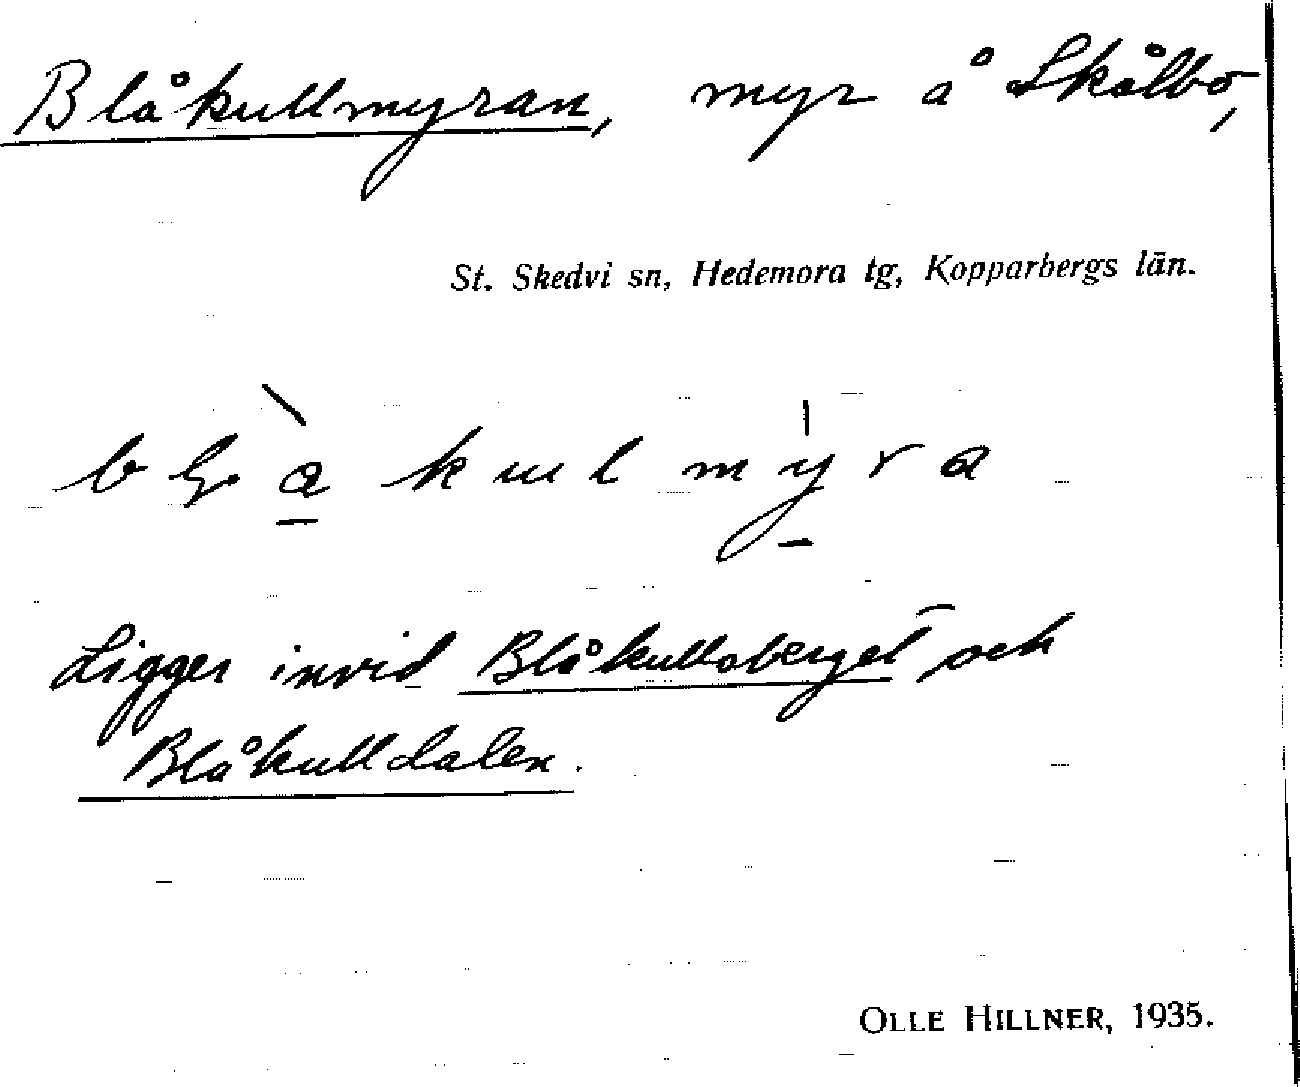 Blåkullmyran, myr å Skålbo,
St. Skedvi sn, Hedemora tg, Kopparbergs län.
Ligger invid Blåkullsberget och
Blåkulldalen.
OLLE HILLNER, 1935.